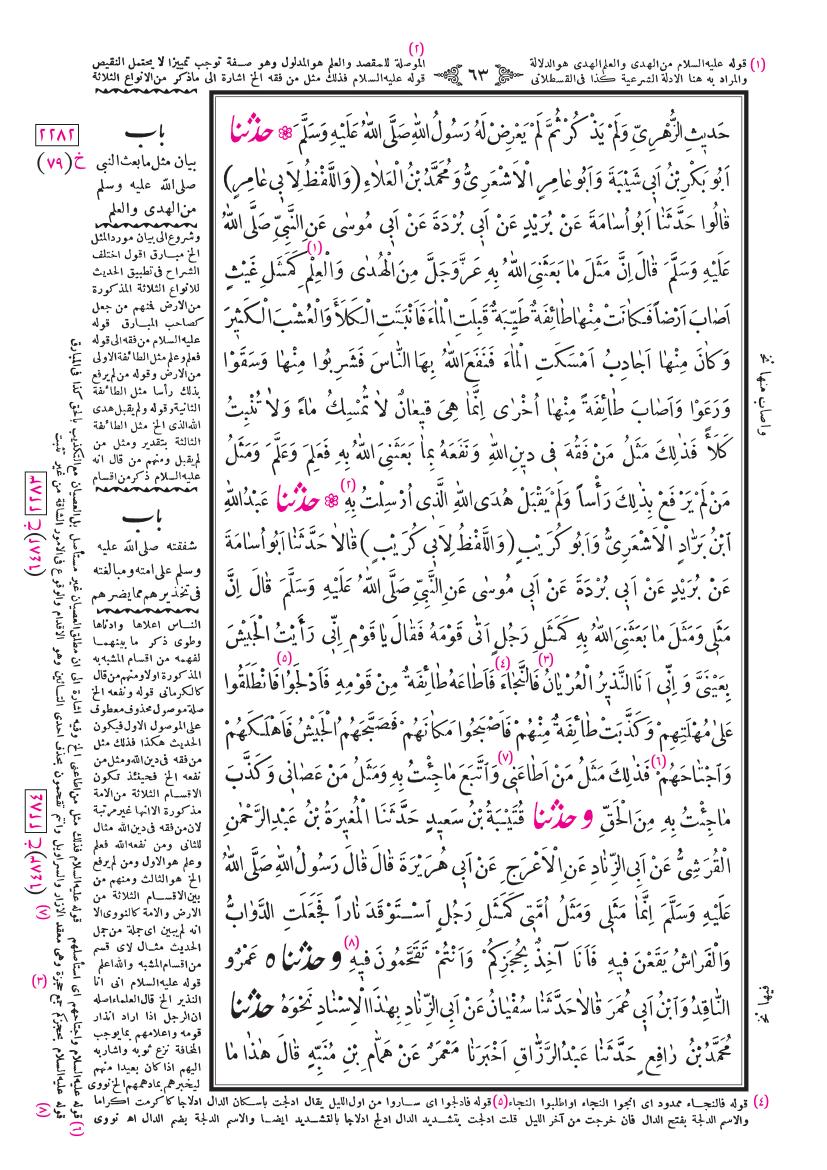 (٢)
(١) قوله عليه السلام من الهدى والعلم الهدى هو الدلالة
والمراد به هنا الادلة الشرعية كذا فى القسطلانى
٦٣
الموصلة للمقصد والعلم هو المدلول وهو صفة توجب تمييزا لا يحتمل النقيض
قوله عليه السلام فذلك مثل من فقه الخ اشارة الى ماذكر من الانواع الثلاثة
حَديثِ الزُّهْرِىِّ وَلَمْ يَذْكُرْ ثُمَّ لَمْ يَعْرِضْ لَهُ رَسُولُ اللهِ صَلَّى اللهُ عَلَيْهِ وَسَلَّمَ ❁ حدثنا
اَبُو بَكْرِ بْنُ اَبِى شَيْبَةَ وَاَبُو عَامِرٍ الْاَشْعَرِىُّ وَمُحَمَّدُ بْنُ الْعَلَاءِ (وَاللَّفْظُ لِاَبِى عَامِرٍ)
قَالُوا حَدَّثَنَا اَبُو اُسَامَةَ عَنْ بُرَيْدٍ عَنْ اَبِى بُرْدَةَ عَنْ اَبِى مُوسٰى عَنِ النَّبِىِّ صَلَّى اللهُ
عَلَيْهِ وَسَلَّمَ قَالَ اِنَّ مَثَلَ مَا بَعَثَنِىَ اللهُ بِهِ عَزَّ وَجَلَّ مِنَ الْهُدٰى وَالْعِلْمِ (١) كَمَثَلِ غَيْثٍ
اَصَابَ اَرْضًا فَكَانَتْ مِنْهَا طَائِفَةٌ طَيِّبَةٌ قَبِلَتِ الْمَاءَ فَاَنْبَتَتِ الْكَلَأَ وَالْعُشْبَ الْكَثِيرَ
وَكَانَ مِنْهَا اَجَادِبُ اَمْسَكَتِ الْمَاءَ فَنَفَعَ اللهُ بِهَا النَّاسَ فَشَرِبُوا مِنْهَا وَسَقَوْا
وَرَعَوْا وَاَصَابَ طَائِفَةً مِنْهَا اُخْرٰى اِنَّمَا هِىَ قِيعَانٌ لَا تُمْسِكُ مَاءً وَلَا تُنْبِتُ
كَلَأً فَذٰلِكَ مَثَلُ مَنْ فَقُهَ فِى دِينِ اللهِ وَنَفَعَهُ بِمَا بَعَثَنِىَ اللهُ بِهِ فَعَلِمَ وَعَلَّمَ وَمَثَلُ
مَنْ لَمْ يَرْفَعْ بِذٰلِكَ رَأْسًا وَلَمْ يَقْبَلْ هُدَى اللهِ الَّذِى اُرْسِلْتُ بِهِ (٢) ❁ حدثنا عَبْدُ اللهِ
ابْنُ بَرَّادٍ الْاَشْعَرِىُّ وَاَبُو كُرَيْبٍ (وَاللَّفْظُ لِاَبِى كُرَيْبٍ) قَالَا حَدَّثَنَا اَبُو اُسَامَةَ
عَنْ بُرَيْدٍ عَنْ اَبِى بُرْدَةَ عَنْ اَبِى مُوسٰى عَنِ النَّبِىِّ صَلَّى اللهُ عَلَيْهِ وَسَلَّمَ قَالَ اِنَّ
مَثَلِى وَمَثَلَ مَا بَعَثَنِىَ اللهُ بِهِ كَمَثَلِ رَجُلٍ اَتٰى قَوْمَهُ فَقَالَ يَا قَوْمِ اِنِّى رَأَيْتُ الْجَيْشَ
بِعَيْنَىَّ وَاِنِّى اَنَا النَّذِيرُ الْعُرْيَانُ (٣) فَالنَّجَاءَ (٤) فَاَطَاعَهُ طَائِفَةٌ مِنْ قَوْمِهِ فَاَدْلَجُوا (٥) فَانْطَلَقُوا
عَلٰى مُهْلَتِهِمْ وَكَذَّبَتْ طَائِفَةٌ مِنْهُمْ فَاَصْبَحُوا مَكَانَهُمْ فَصَبَّحَهُمُ الْجَيْشُ فَاَهْلَكَهُمْ
وَاجْتَاحَهُمْ (٦) فَذٰلِكَ مَثَلُ مَنْ اَطَاعَنِى (٧) وَاتَّبَعَ مَا جِئْتُ بِهِ وَمَثَلُ مَنْ عَصَانِى وَكَذَّبَ
مَا جِئْتُ بِهِ مِنَ الْحَقِّ وحدثنا قُتَيْبَةُ بْنُ سَعِيدٍ حَدَّثَنَا الْمُغِيرَةُ بْنُ عَبْدِ الرَّحْمٰنِ
الْقُرَشِىُّ عَنْ اَبِى الزِّنَادِ عَنِ الْاَعْرَجِ عَنْ اَبِى هُرَيْرَةَ قَالَ قَالَ رَسُولُ اللهِ صَلَّى اللهُ
عَلَيْهِ وَسَلَّمَ اِنَّمَا مَثَلِى وَمَثَلُ اُمَّتِى كَمَثَلِ رَجُلٍ اسْتَوْقَدَ نَارًا فَجَعَلَتِ الدَّوَابُّ
وَالْفَرَاشُ يَقَعْنَ فِيهِ فَاَنَا آخِذٌ بِحُجَزِكُمْ وَاَنْتُمْ تَقَحَّمُونَ فِيهِ (٨) وحدثناه عَمْرٌو
النَّاقِدُ وَابْنُ اَبِى عُمَرَ قَالَا حَدَّثَنَا سُفْيَانُ عَنْ اَبِى الزِّنَادِ بِهٰذَا الْاِسْنَادِ نَحْوَهُ حدثنا
مُحَمَّدُ بْنُ رَافِعٍ حَدَّثَنَا عَبْدُ الرَّزَّاقِ اَخْبَرَنَا مَعْمَرٌ عَنْ هَمَّامِ بْنِ مُنَبِّهٍ قَالَ هٰذَا مَا
واصاب منها نخ
باب
بيان مثل ما بعث النبى
صلى الله عليه وسلم
من الهدى والعلم
٢٢٨٢
خ (٧٩)
وشروع الى بيان مورد المثل
الخ مبارق اقول اختلف
الشراح فى تطبيق الحديث
للانواع الثلاثة المذكورة
من الارض فمنهم من جعل
كصاحب المبارق قوله
عليه السلام من فقه الى قوله
فعلم وعلم مثل الطائفة الاولى
من الارض وقوله من لم يرفع
بذلك رأسا مثل الطائفة
الثانية وقوله ولم يقبل هدى
الله الذى الخ مثل الطائفة
الثالثة بتقدير ومثل من
لم يقبل ومنهم من قال انه
عليه السلام ذكر من اقسام
باب
شفقته صلى الله عليه
وسلم على امته ومبالغته
فى تحذيرهم مما يضرهم
٢٢٨٣
٢٢٨٤
الناس اعلاها وادناها
وطوى ذكر ما بينهما
لفهمه من اقسام المشبه به
المذكورة اولا ومنهم من قال
كالكرمانى قوله ونفعه الخ
صلة موصول محذوف معطوف
على الموصول الاول فيكون
الحديث هكذا فذلك مثل
من فقه فى دين الله ومثل من
نفعه الخ فحينئذ تكون
الاقسام الثلاثة من الامة
مذكورة الا انها غير مرتبة
لان من فقه فى دين الله مثال
للثانى ومن نفعه الله فعلم
وعلم هو الاول ومن لم يرفع
الخ هو الثالث ومنهم من
بين الاقسام الثلاثة من
الارض والامة كالنووى الا
انه لم يبين اى جملة من جمل
الحديث مثال لاى قسم
من اقسام المشبه والله اعلم
قوله عليه السلام انى انا
النذير الخ قال العلماء اصله
ان الرجل اذا اراد انذار
قومه واعلامهم بما يوجب
المخافة نزع ثوبه واشار به
اليهم اذا كان بعيدا منهم
ليخبرهم بما دهمهم الخ نووى
(٤) قوله فالنجاء ممدود اى انجوا النجاء او اطلبوا النجاء (٥) قوله فادلجوا اى ساروا من اول الليل يقال ادلجت باسكان الدال ادلاجا كاكرمت اكراما
والاسم الدلجة بفتح الدال فان خرجت من آخر الليل قلت ادلجت بتشديد الدال ادلج ادلاجا بالتشديد ايضا والاسم الدلجة بضم الدال اه نووى